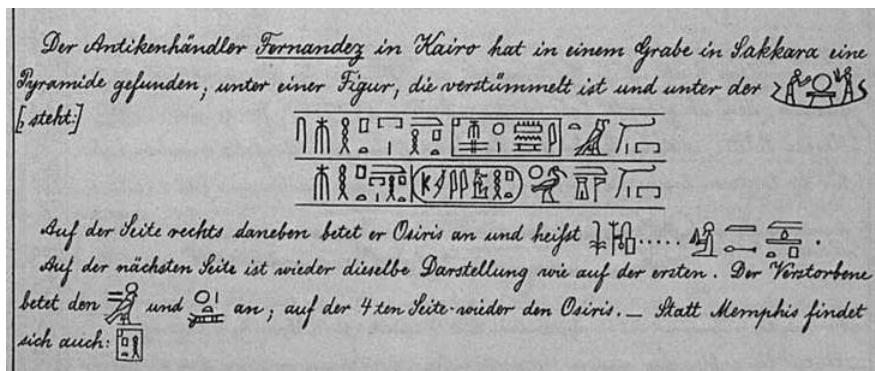 Der Antikenhändler Fernandez in Kairo hat in einem Grabe in Sakkara eine
Pyramide gefunden, unter einer Figur, die verstümmelt ist und unter der
[steht:]
Auf der Seite rechts daneben betet er Osiris an und heifst ..... .
Auf der nächsten Seite ist wieder dieselbe Darstellung wie auf der ersten. Der Verstorbene
betet den und an; auf der 4ten Seite wieder den Osiris. — Statt Memphis findet
sich auch: